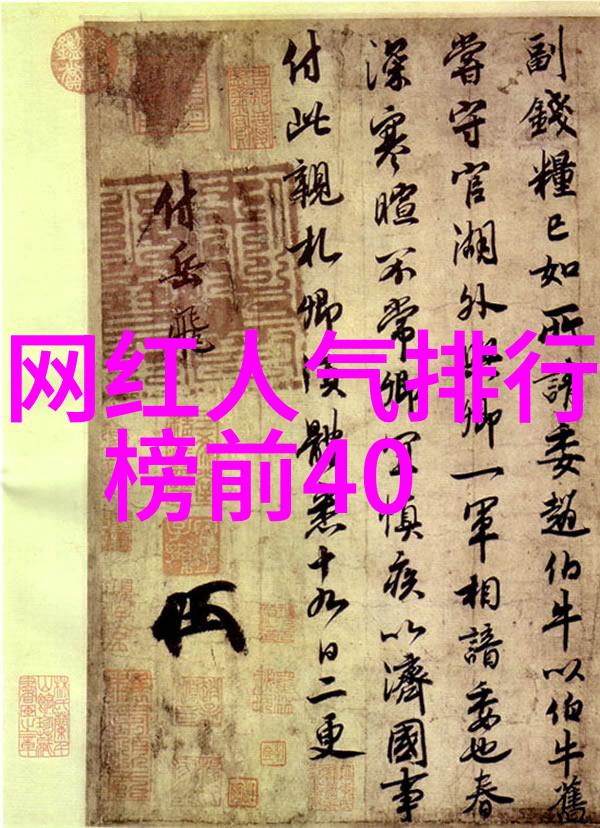 网红人气排行
榜前40
副錢糧已如所請委趙伯牛以伯牛舊
嘗守官湖外與卿一軍相諳委也春
深寒暄不常卿宜慎疾以濟國事
付此親札卿須體悉十九日二更
付岳飛